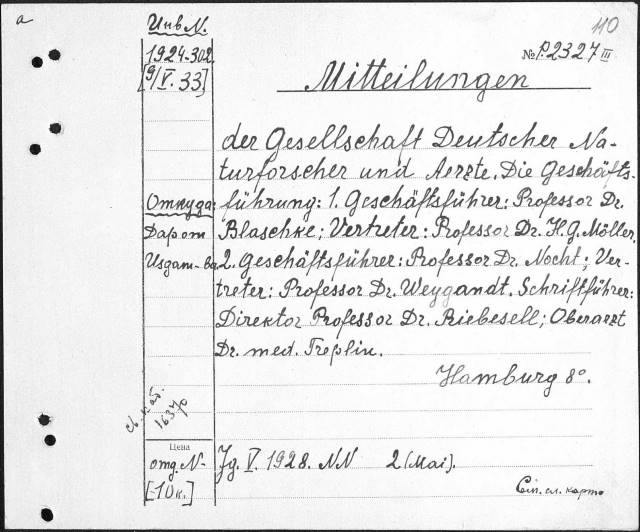 a
Инв N.
110
1924-302.
[9/V. 33]
№ P.2327 III
Mitteilungen
der Gesellschaft Deutscher Na-
turforscher und Aerzte. Die Geschäfts-
Откуда:
führung: 1. Geschäftsführer: Professor Dr.
Дар от
Blaschke; Vertreter: Professor Dr. H.G. Möller.
Usgam-ва
2. Geschäftsführer: Professor Dr. Nocht; Ver-
treter: Professor Dr. Weygandt. Schriftführer:
Direktor Professor Dr. Riebesell; Oberarzt
Dr. med. Treplin.
Hamburg 8°.
16370
Цена
отд. N-
Jg. V. 1928. NN 2 (Mai).
[10 к.]
карто